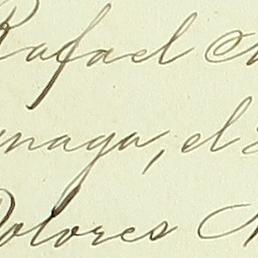 Rafael
naga, el
Dolores